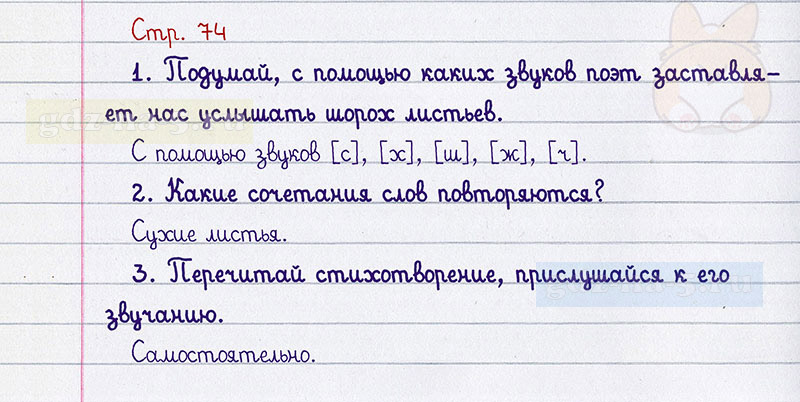 Стр. 74
1. Подумай, с помощью каких звуков поэт заставля-
ет нас услышать шорох листьев.
С помощью звуков [с], [х], [ш], [ж], [ч].
2. Какие сочетания слов повторяются?
Сухие листья.
3. Перечитай стихотворение, прислушайся к его
звучанию.
Самостоятельно.